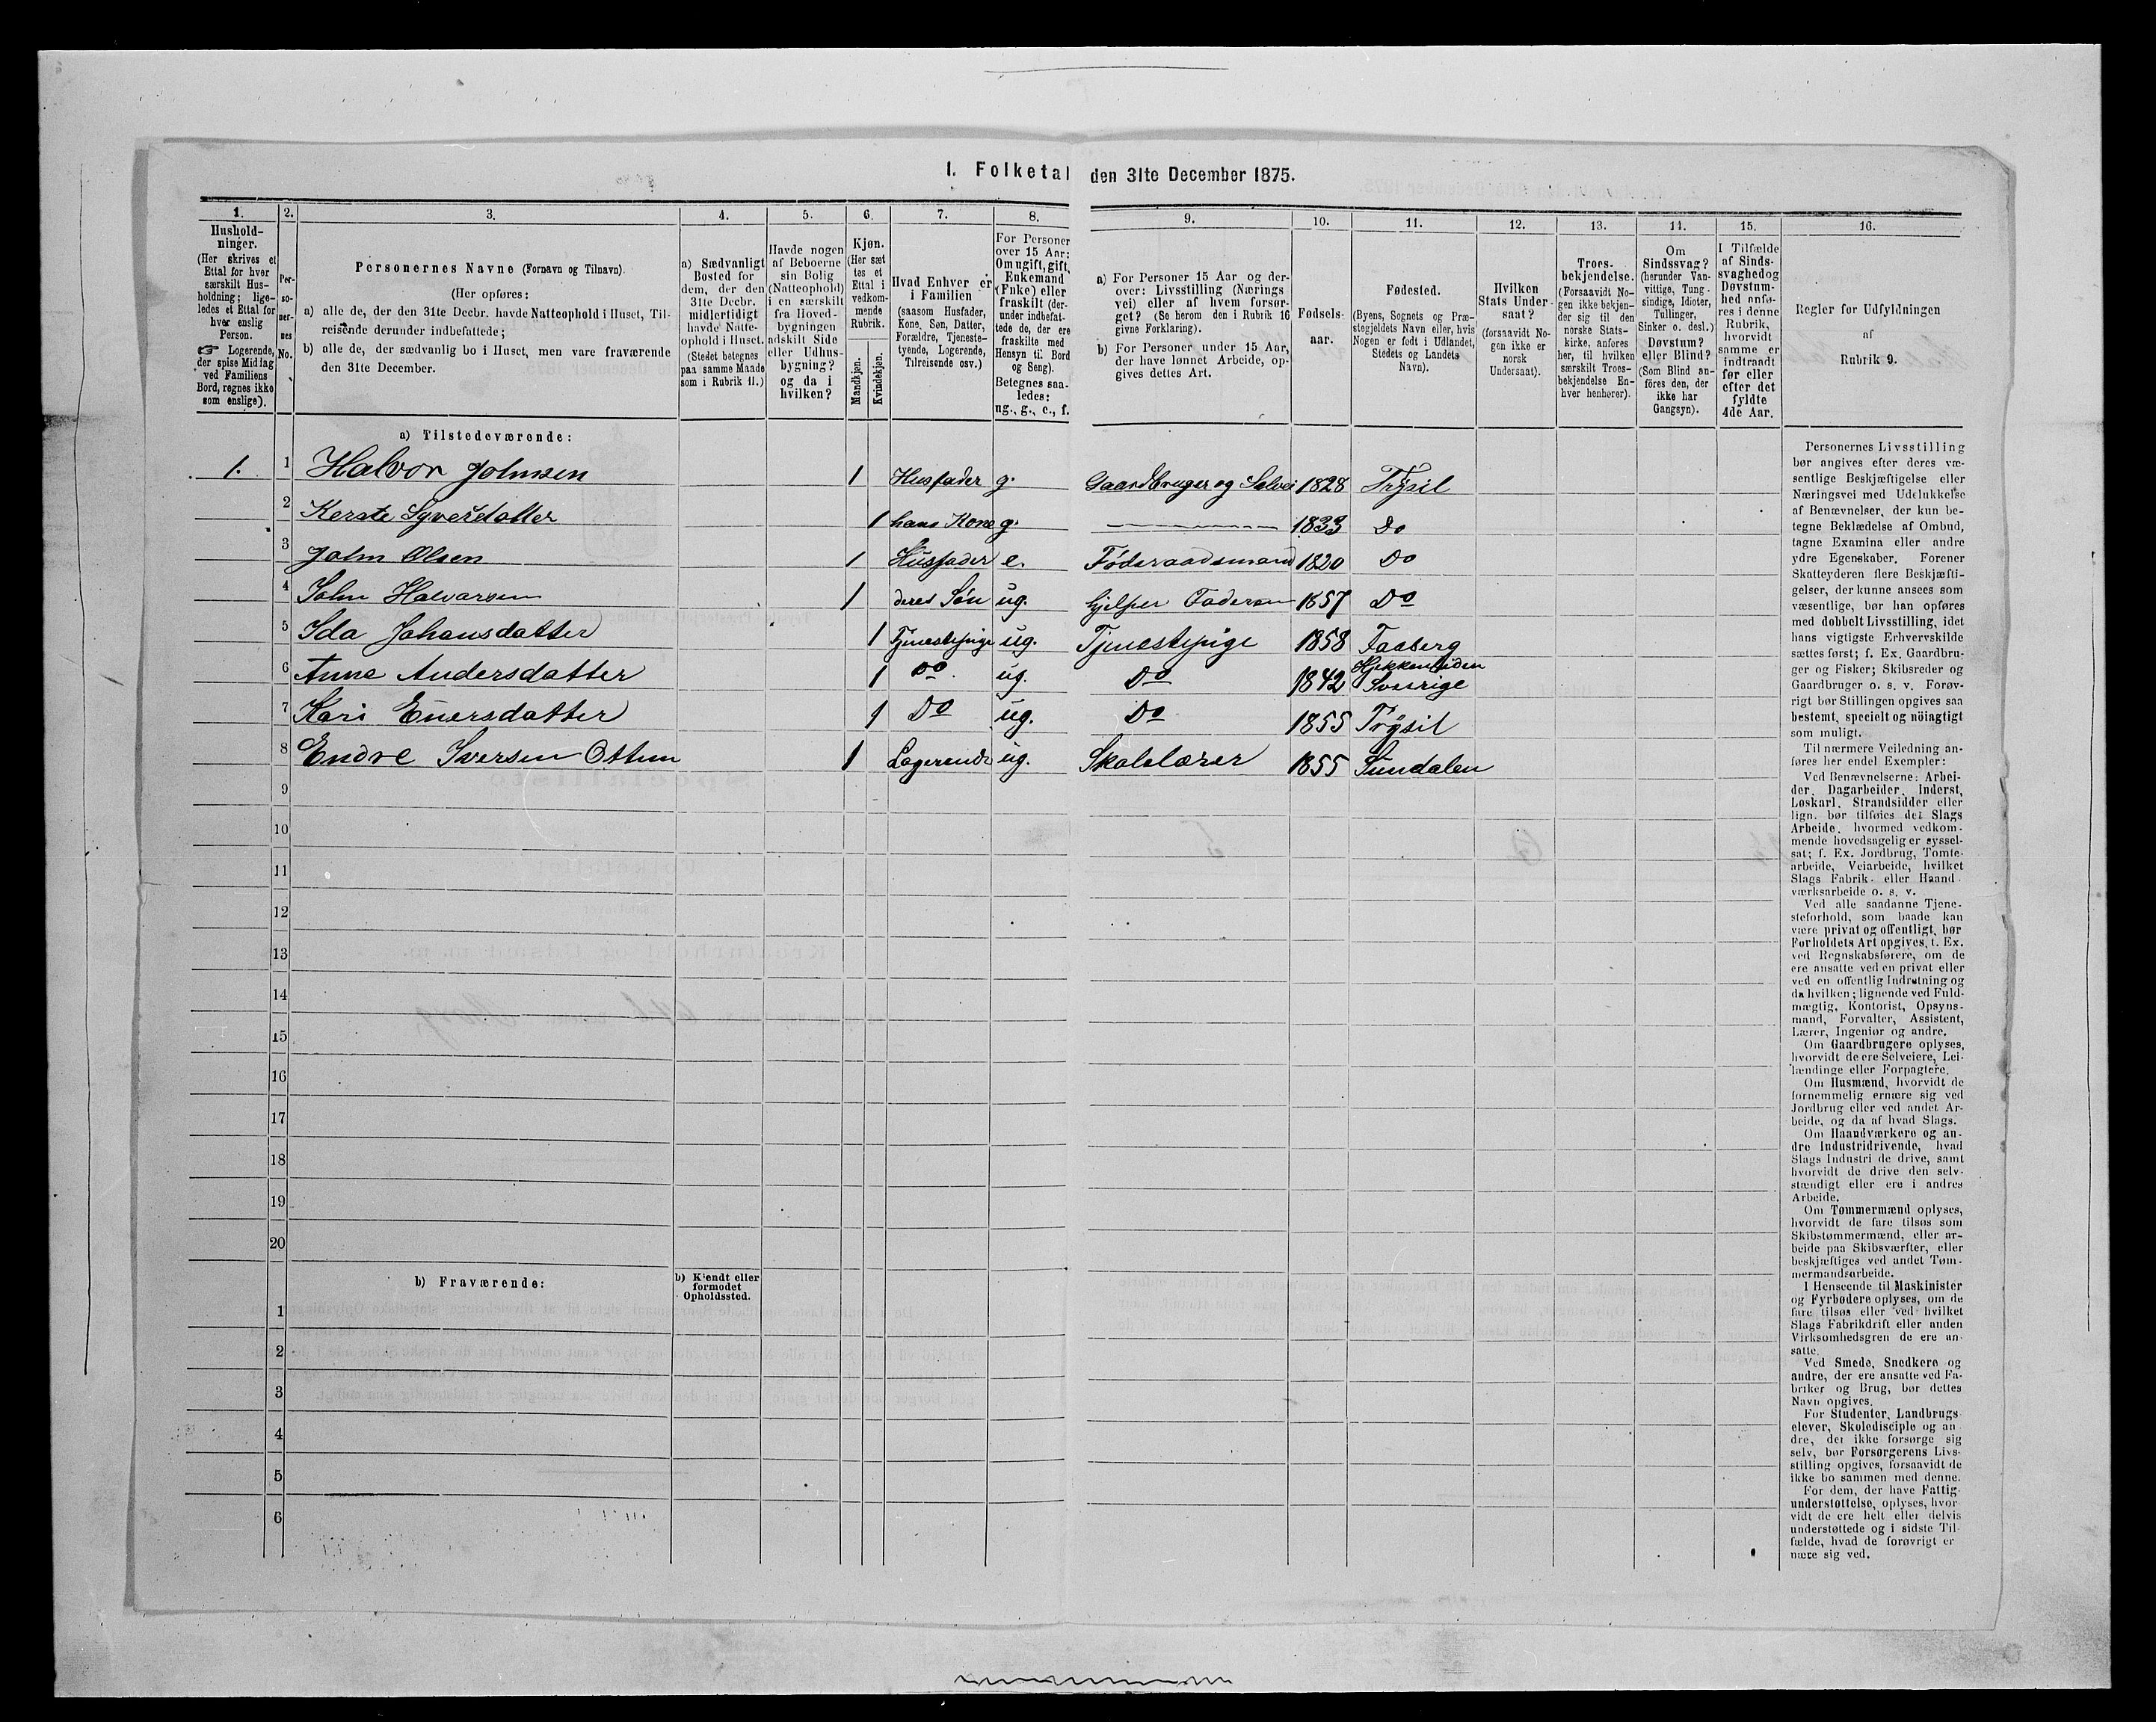 I. Folketal den 31te December 1875.
1.
Hushold-
ninger.
(Her skrives et
Ettal for hver
særskilt Hus-
holdning; lige-
ledes et Ettal for
hver enslig
Person.
☞ Logerende,
der spise Midlag
ved Familiens
Bord, regnes ikke
som enslige).
2.
Per-
so-
ner-
nes
No.
3.
Personernes Navne (Fornavn og Tilnavn).
(Her opføres:
a) alle de, der den 31te Decbr. havde Natteophold i Huset, Til-
reisende derunder indbefattede;
b) alle de, der sædvanlig bo i Huset, men vare fraværende
den 31te December.
4.
a) Sædvanligt
Bosted for
dem, der den
31te Decbr.
midlertidigt
havde Natte-
ophold i Huset.
(Stedet betegnes
paa samme Maade
som i Rubrik 11.)
5.
Havde nogen
af Beboerne
sin Bolig
(Natteophold)
i en særskilt
fra Hoved-
bygningen
adskilt Side
eller Udhus-
bygning?
og da i
hvilken?
6.
Kjøn.
(Her sæt
tes et
Ettal i
vedkom-
mende
Rubrik.
Mandkjøn.
Kvindekjøn.
7.
Hvad Enhver er
i Familien
(saasom Husfader,
Kone, Søn, Datter,
Forældre, Tjeneste-
tyende, Logerende,
Tilreisende osv.)
8.
For Personer
over 15 Aar:
Om ugift, gift,
Enkemand
(Enke) eller
fraskilt (der-
under indbefat-
tede de, der ere
fraskilte med
Hensyn til Bord
og Seng).
Betegnes saa-
ledes:
ug., g., e., f.
9.
a) For Personer 15 Aar og der-
over: Livsstilling (Nærings
vei) eller af hvem forsør-
get? (Se herom den i Rubrik 16
givne Forklaring).
b) For Personer under 15 Aar,
der have lønnet Arbeide, op-
gives dettes Art.
10.
Fødsels-
aar.
11.
Fødested.
(Byens, Sognets og Præ-
stegjeldets Navn eller, hvis
Nogen er født i Udlandet,
Stedets og Landets
Navn).
12.
Hvilken
Stats Under-
saat?
(forsaavidt No-
gen ikke er
norsk
Undersaat).
13.
Troes-
bekjendelse.
(Forsaavidt No-
gen ikke bekjen-
der sig til den
norske Stats-
kirke, anføres
her, til hvilken
særskilt Troes-
bekjendelse En-
hver henhører).
14.
Om
Sindssvag?
(herunder Van-
vittige, Tung-
sindige, Idioter,
Tullinger,
Sinker o. desl.)
Døvstum?
eller Blind?
(Som Blind an-
føres den, der
ikke har
Gangsyn).
15.
I Tilfælde
af Sinds-
svaghed og
Døvstum-
hed anfø-
res i denne
Rubrik,
hvorvidt
samme er
indtraadt
før eller
efter det
fyldte
4de Aar.
16.
Regler for Udfyldningen
af
Rubrik 9.
a) Tilstedeværende:
1. 1 Halvor Johnsen 1 Husfader g. Gaardbruger og Selvei 1828 Trysil
2 Kerste Syversdatter 1 hans Kone g. 1833 Do
3 John Olsen 1 Husfader e. Føderaadsmand 1820 Do
4 John Halvorsen 1 deres Søn ug. hjelper Faderen 1857 Do
5 Ida Johansdatter 1 Tjenestepige ug. Tjenestepige 1858 Faaberg
6 Anne Andersdatter 1 Do. ug. Do 1842 Sverrige
7 Kari Enersdatter 1 Do ug. Do 1855 Trysil
8 Endre Iversen Ottem 1 Logerende ug. Skolelærer 1855 Sundalen
9
10
11
12
13
14
15
16
17
18
19
20
b) Fraværende:
b) Kjendt eller
formodet
Opholdssted.
1
2
3
4
5
6
Personernes Livsstilling
bør angives efter deres væ-
sentlige Beskjæftigelse eller
Næringsvei med Udelukkelse
af Benævnelser, der kun be-
tegne Beklædelse af Ombud,
tagne Examina eller andre
ydre Egenskaber. Forener
Skatteyderen flere Beskjæfti-
gelser, der kunne ansees som
væsentlige, bør han opføres
med dobbelt Livsstilling, idet
hans vigtigste Erhvervskilde
sættes først; f. Ex. Gaardbru-
ger og Fisker; Skibsreder og
Gaardbruger o. s. v. Forøv-
rigt bør Stillingen opgives saa
bestemt, specielt og nöiagtigt
som muligt.
Til nærmere Veiledning an-
føres her endel Exempler:
Ved Benævnelserne: Arbei-
der, Dagarbeider, Inderst,
Løskarl, Strandsidder eller
lign. bør tilføies det Slags
Arbeide, hvormed vedkom-
mende hovedsagelig er syssel-
sat; f. Ex. Jordbrug, Tomte-
arbeide, Veiarbeide, hvilket
Slags Fabrik- eller Haand-
værksarbeide o. s. v.
Ved alle saadanne Tjene-
steforhold, som baade kan
være privat og offentligt, bør
Forholdets Art opgives, f. Ex.
ved Regnskabsførere, om de
ere ansatte ved en privat eller
ved en offentlig Indretning og
da hvilken; lignende ved Fuld-
mægtig, Kontorist, Opsyns-
mand, Forvalter, Assistent,
Lærer, Ingeniør og andre.
Om Gaardbrugere oplyses,
hvorvidt de ere Selveiere, Lei-
lændinge eller Forpagtere.
Om Husmænd, hvorvidt de
fornemmelig ernære sig ved
Jordbrug eller ved andet Ar-
beide, og da af hvad Slags.
Om Haandværkere og an-
dre Industridrivende, hvad
Slags Industri de drive, samt
hvorvidt de drive den selv-
stændigt eller ere i andres
Arbeide.
Om Tømmermænd oplyses,
hvorvidt de fare tilsøs som
Skibstømmermænd, eller ar-
beide paa Skibsværfter, eller
beskjæftiges ved andet Tøm-
mermandsarbeide.
I Henseende til Maskinister
og Fyrbødere oplyses, om de
fare tilsøs eller ved hvilket
Slags Fabrikdrift eller anden
Virksomhedsgren de ere an-
satte.
Ved Smede, Snedkere og
andre, der ere ansatte ved Fa-
briker og Brug, bør dettes
Navn opgives.
For Studenter, Landbrugs-
elever, Skoledisciple og an-
dre, der ikke forsørge sig
selv, bør Forsørgerens Livs-
stilling opgives, forsaavidt de
ikke bo sammen med denne.
For dem, der have Fattig-
understøttelse, oplyses, hvor-
vidt de ere helt eller delvis
understøttede og i sidste Til-
fælde, hvad de forøvrigt er-
nære sig ved.